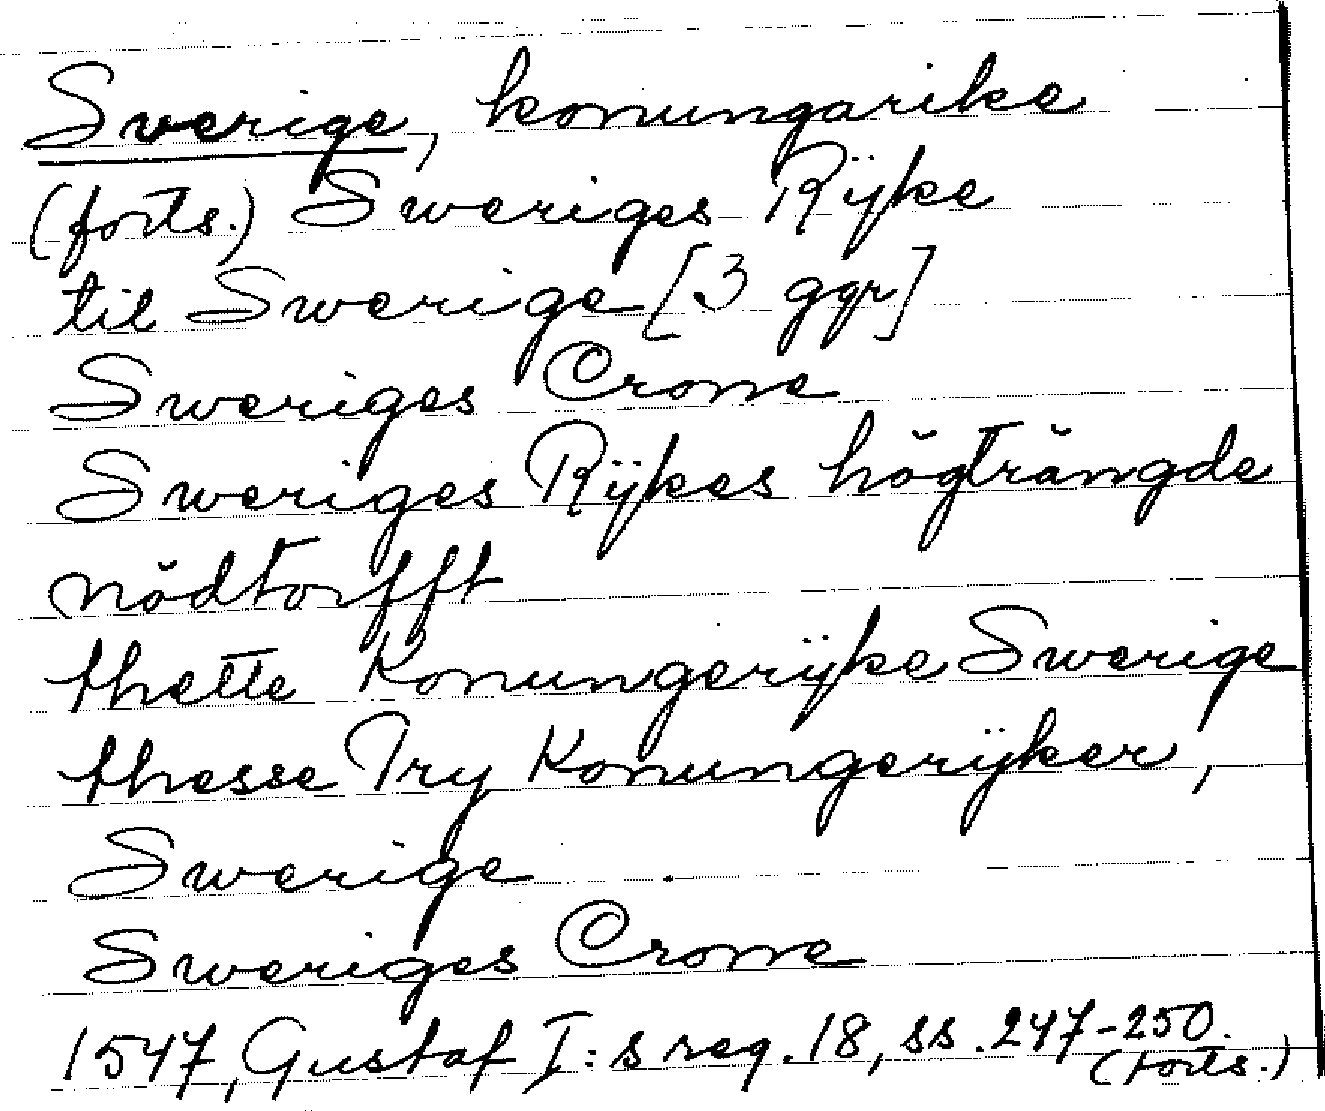 Sverige, konungarike
(forts.) Sweriges Rÿke
til Swerige [3 ggr]
Sweriges Crone
Sweriges Rÿkes högträngde
nödtorfft
thette Konungerÿke Swerige
thesse Try Konungerÿker,
Swerige
Sweriges Crone
1547, Gustaf I:s reg. 18, ss. 247-250.
(forts.)